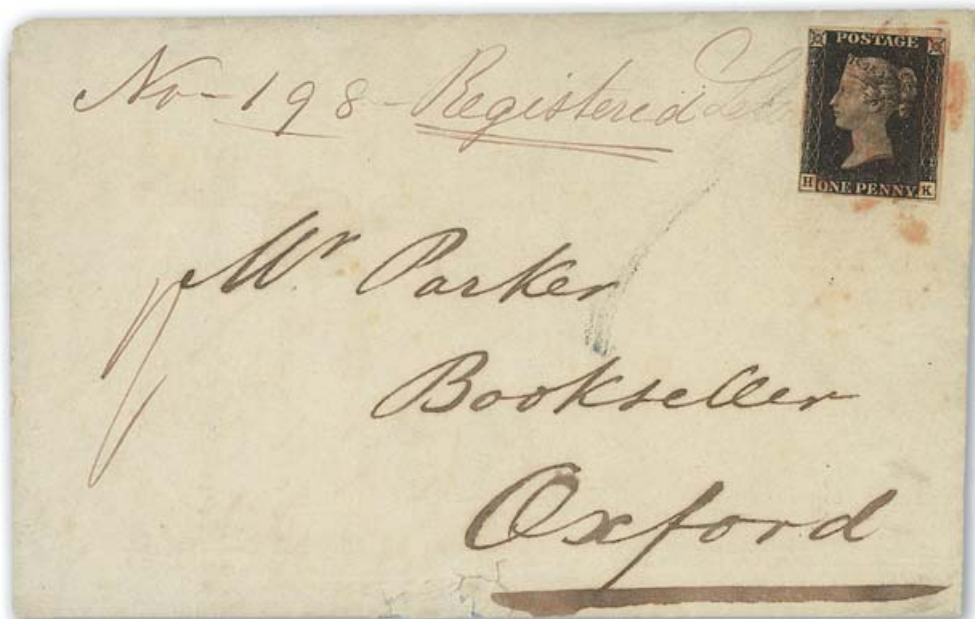 No - 198 - Registered
POSTAGE
H ONE PENNY K
Mr. Parker
Bookseller
Oxford